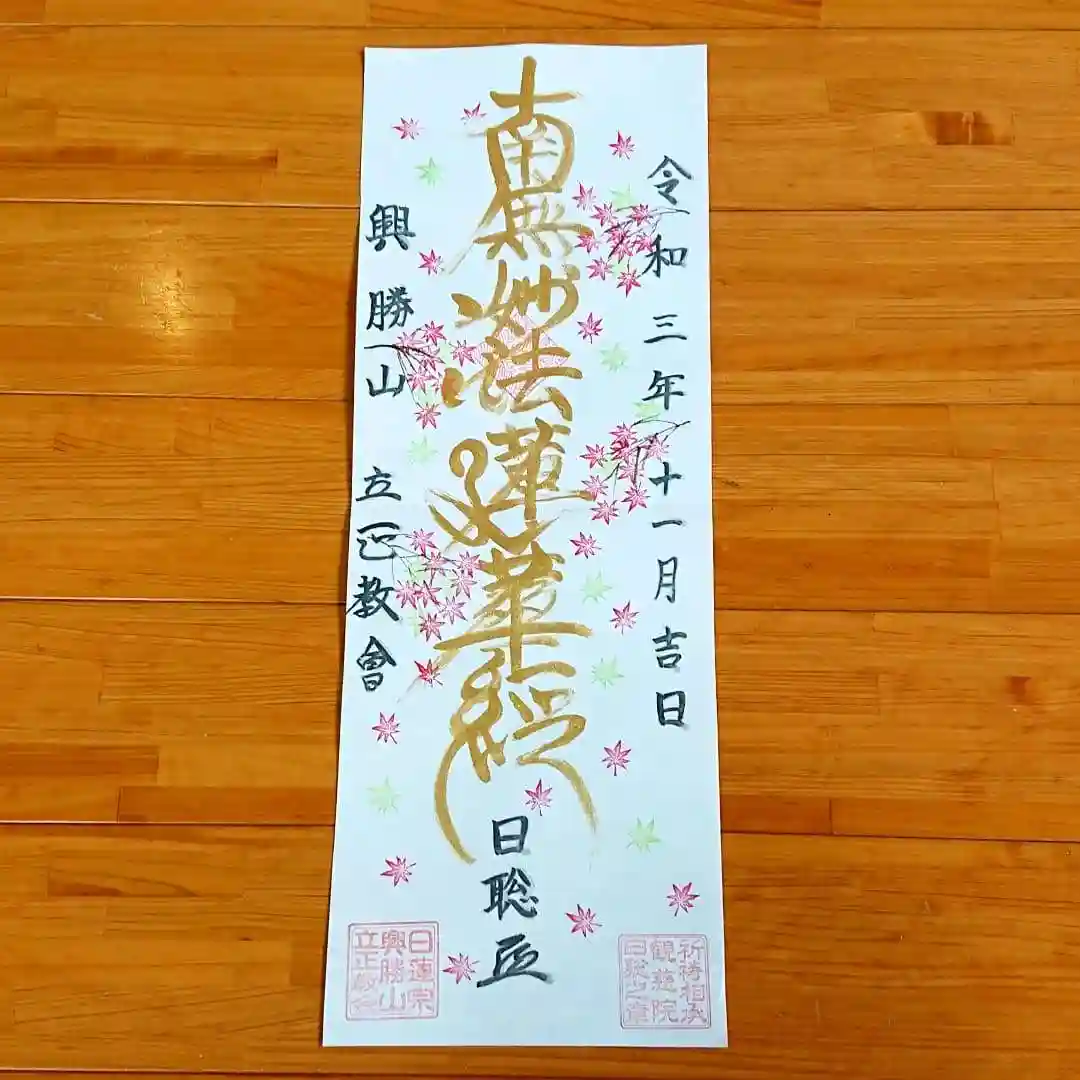 令和三年十一月吉日
南無妙法蓮華経
日聡
興勝山 立正教會
祈祷相承
観荘院
日聡之章
日蓮宗
興勝山
立正教会